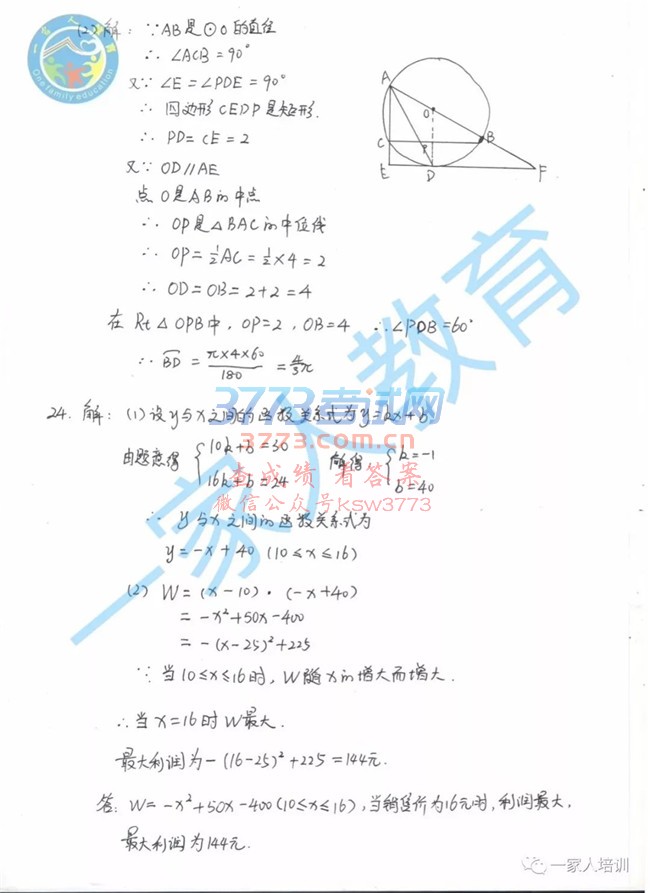 (2)解: ∵AB是⊙O的直径
∴ ∠ACB=90°
又∵ ∠E=∠PDE=90°
∴ 四边形CEDP是矩形.
∴ PD=CE=2
又∵ OD∥AE
点O是AB的中点
∴ OP是△BAC的中位线
∴ OP=½AC=½×4=2
∴ OD=OB=2+2=4
在Rt△OPB中, OP=2, OB=4 ∴∠PDB=60°
∴ BD=π×4×60/180=4/3π
A
O
C
P
B
E
D
F
24. 解: (1)设y与x之间的函数关系式为y=kx+b
由题意得 {10k+b=30 16k+b=24 解得 {k=-1 b=40
∴ y与x之间的函数关系式为
y=-x+40 (10≤x≤16)
(2) W=(x-10)·(-x+40)
=-x²+50x-400
=-(x-25)²+225
∵当10≤x≤16时, W随x的增大而增大.
∴当x=16时W最大.
最大利润为-(16-25)²+225=144元.
答: W=-x²+50x-400(10≤x≤16), 当销售价为16元时, 利润最大,
最大利润为144元.
一家人教育
One family education
一家人教育
3773考试网
3773.com.cn
查成绩 看答案
微信公众号ksw3773
一家人培训